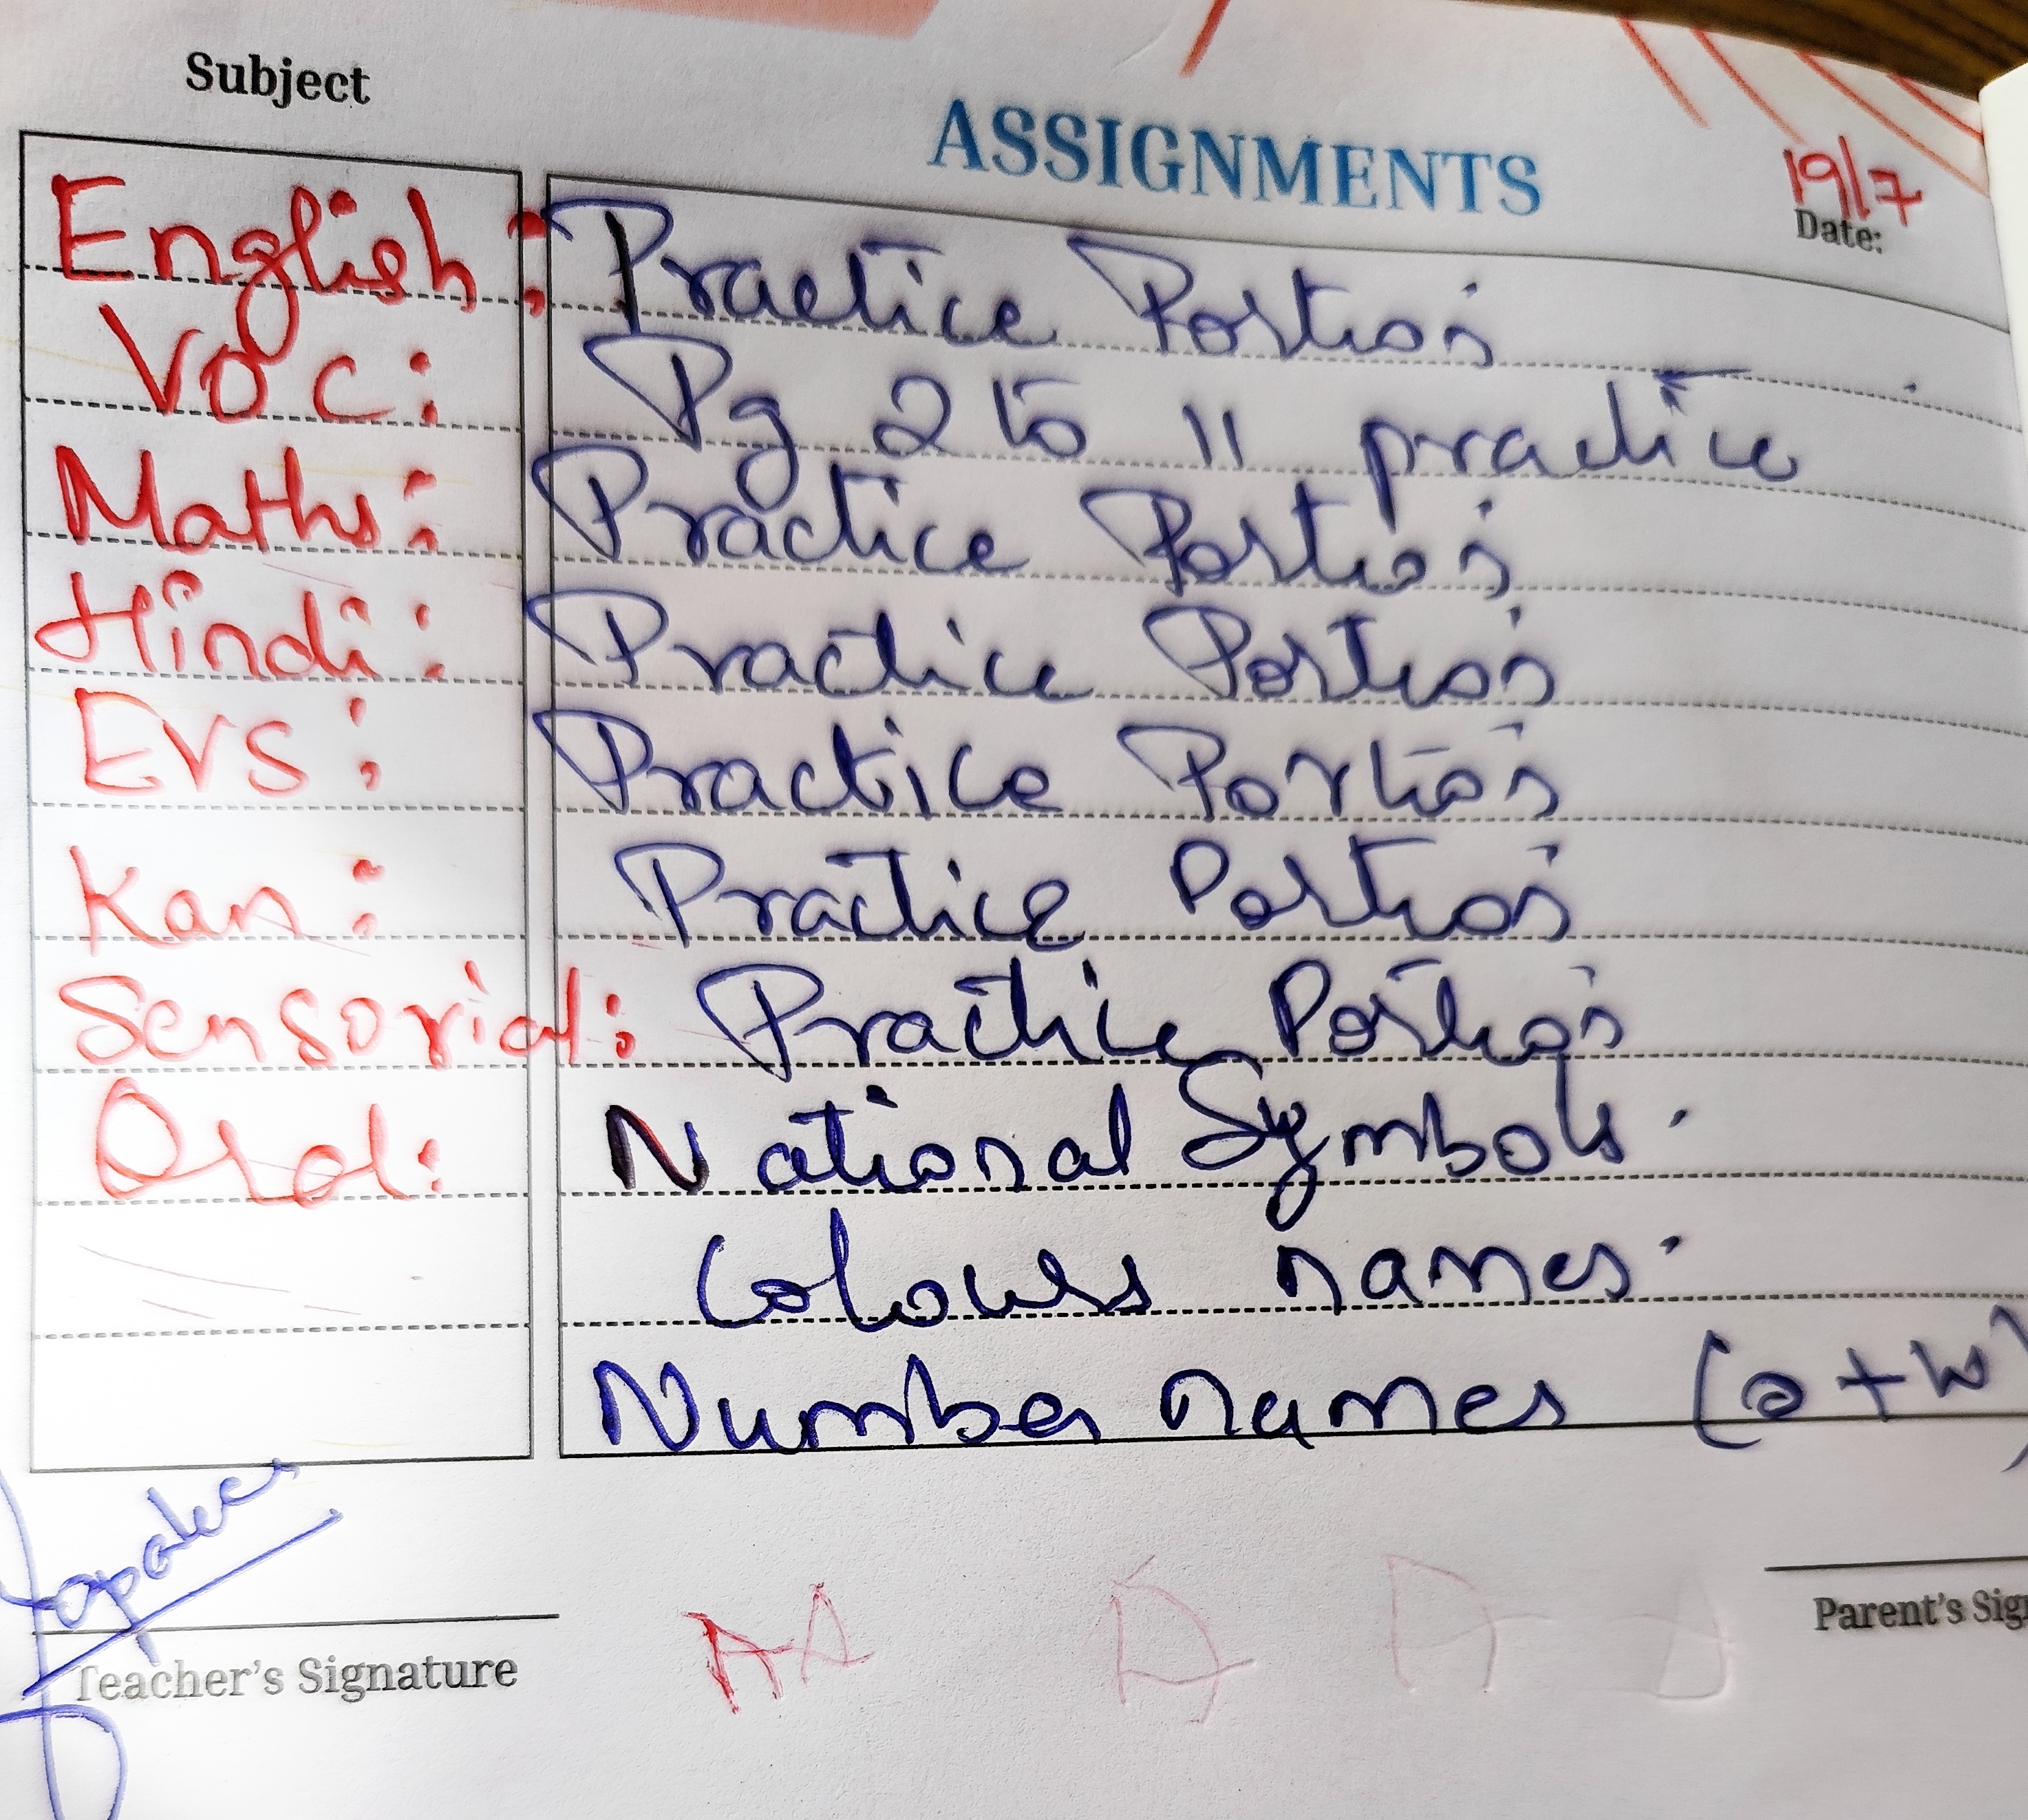 Subject
ASSIGNMENTS
19/7
Date:
English: Practice Portion
VOC: Pg 2 to 11 practice
Maths: Practice Portion
Hindi: Practice Portion
EVS: Practice Portion
Kan: Practice Portion
Sensorial: Practice Portion
Oral: National Symbols.
Colours names.
Number names (o+w)
Teacher's Signature
Parent's Sig
A A A